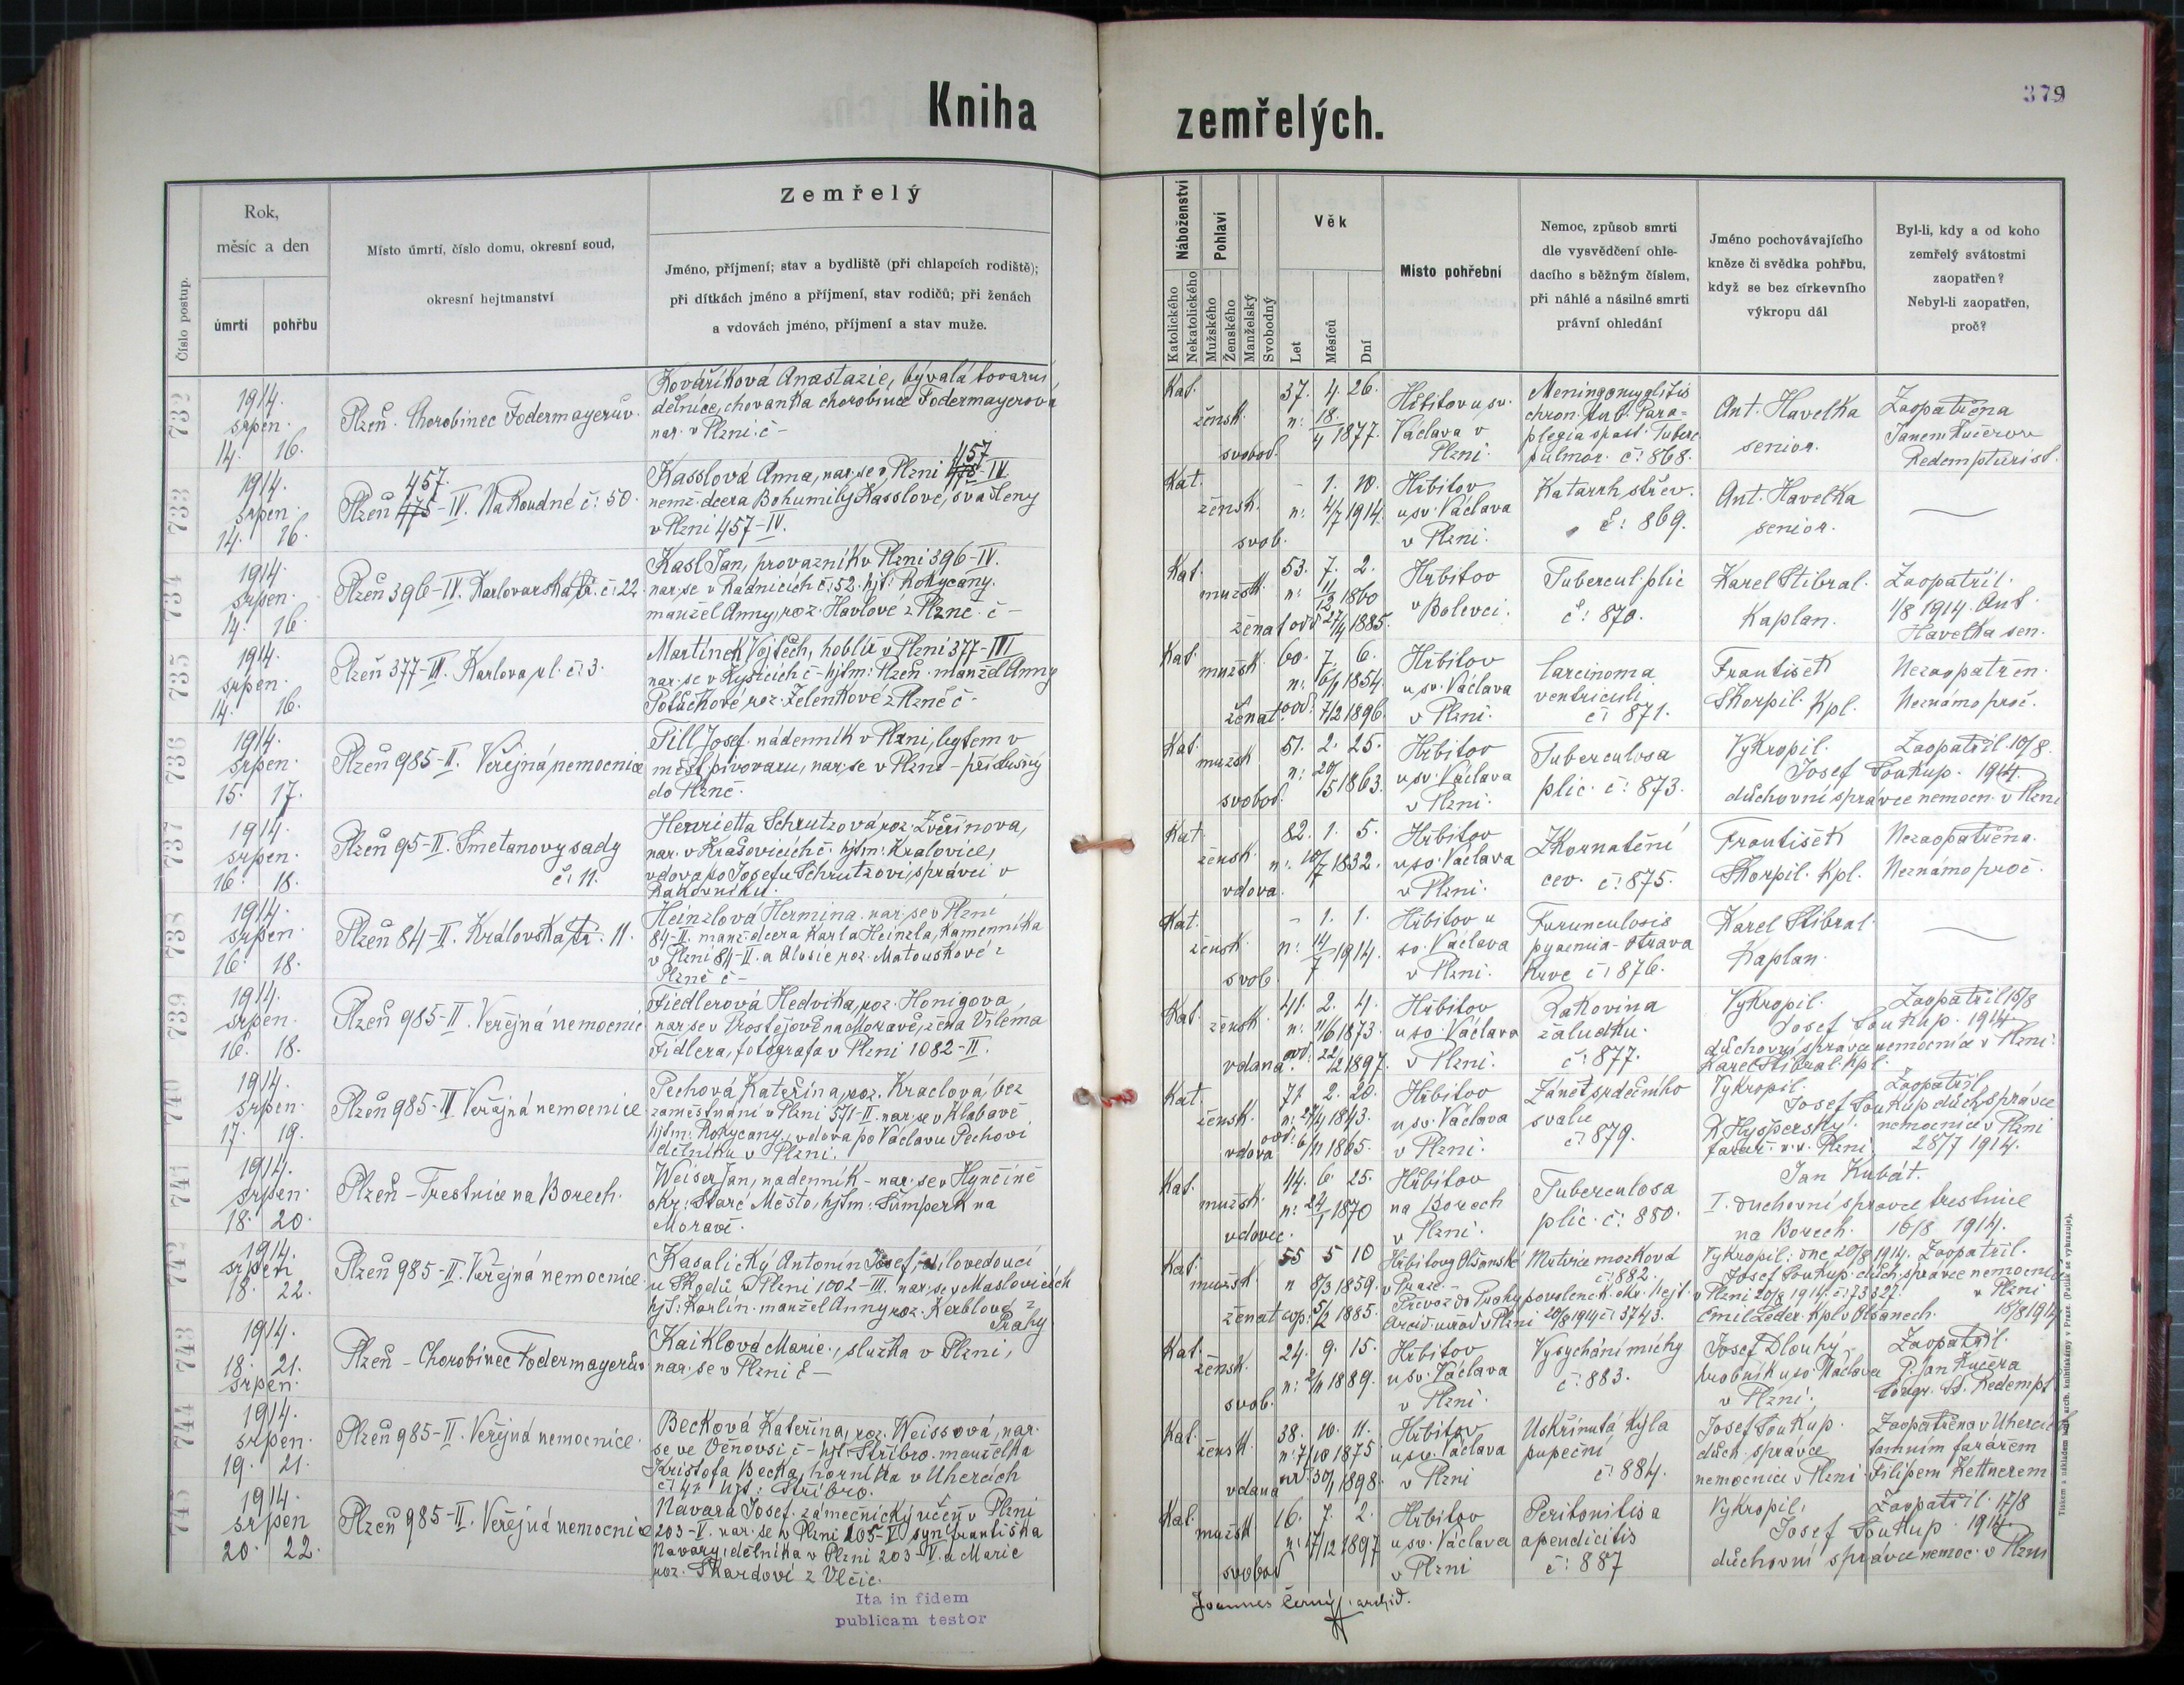 Kniha
zemřelých.
379
Číslo postup.
Rok,
měsíc a den
úmrtí
pohřbu
Místo úmrtí, číslo domu, okresní soud,
okresní hejtmanství
Zemřelý
Jméno, příjmení; stav a bydliště (při chlapcích rodiště);
při dítkách jméno a příjmení, stav rodičů; při ženách
a vdovách jméno, příjmení a stav muže.
Náboženství
Katolického
Nekatolického
Pohlaví
Mužského
Ženského
Manželský
Svobodný
Věk
Let
Měsíců
Dní
Místo pohřební
Nemoc, způsob smrti
dle vysvědčení ohle-
dacího s běžným číslem,
při náhlé a násilné smrti
právní ohledání
Jméno pochovávajícího
kněze či svědka pohřbu,
když se bez církevního
výkropu dál
Byl-li, kdy a od koho
zemřelý svátostmi
zaopatřen?
Nebyl-li zaopatřen,
proč?
732
1914.
srpen.
14. 16.
Plzeň. Chorobinec Fodermayerův.
Kováříková Anastazie, bývalá tovární
dělnice, chovanka chorobince Fodermayerova
nar. v Plzni č –
Kat. žensk. svobod.
37. 4. 26.
n: 18/4 1877.
Hřbitov u sv.
Václava v
Plzni.
chron. tub. Para=
plegia spast. Tuberc
pulmor. č: 868.
Ant. Havelka
senior.
Zaopatřena
Janem Kučerou
Redemptorist.
733
1914.
srpen.
14. 16.
457
Plzeň 475-IV. Na Roudné č: 50.
457
Kasslová Anna, nar. se v Plzni 475-IV
nemž. dcera Bohumily Kasslové, švadleny
v Plzni 457-IV.
Kat. žensk. svob.
– 1. 10.
n: 4/7 1914.
Hřbitov
u sv. Václava
v Plzni.
Katarrh střev.
č: 869.
Ant. Havelka
senior.
734
1914.
srpen.
14. 16.
Plzeň 396-IV. Karlovarská tř. č: 22
Kasl Jan, provazník v Plzni 396-IV.
nar. se v Radnicích č: 52. hjt: Rokycany.
manžel Anny, roz. Havlové z Plzně č –
Kat. mužsk. ženat
53. 7. 2.
n: 11/12 1860
odd 27/4 1885.
Hřbitov
v Bolevci.
Tubercul. plic
č: 870.
Karel Stibral.
Kaplan.
Zaopatřil.
1/8 1914. Ant
Havelka sen.
735
1914.
srpen.
14. 16.
Plzeň 377-III. Karlova ul. č: 3.
Martínek Vojtěch, hoblíř v Plzni 377-III
nar. se v Kyšicích č – hjtm: Plzeň. manžel Anny
Potůčkové, roz. Zelenkové z Plzně č –
Kat. mužsk. ženat
60. 7. 6.
n: 6/1 1854.
odd: 7/2 1896.
Hřbitov
u sv. Václava
v Plzni.
Carcinoma
ventriculi
č: 871.
František
Škorpil. Kpl.
Nezaopatřen.
Neznámo proč.
736
1914.
srpen.
15. 17.
Plzeň 985-II. Veřejná nemocnice
Till Josef. nádenník v Plzni, bytem v
měšt. pivovaru, nar. se v Plzni – příslušný
do Plzně.
Kat. mužsk. svobod.
51. 2. 25.
n: 20/5 1863.
Hřbitov
u sv. Václava
v Plzni.
Tuberculosa
plic. č: 873.
Vykropil. Zaopatřil 10/8.
Josef Soukup. 1914.
duchovní správce nemocn. v Plzni
737
1914.
srpen.
16. 18.
Plzeň 95-II. Smetanovy sady
č: 11.
Henrietta Schrutzová, roz. Zvěřinova,
nar. v Krašovicích č. hjtm: Kralovice,
vdova po Josefu Schrutzovi, správci v
Rakovníku.
Kat. žensk. vdova.
82. 1. 5.
n: 10/7 1832.
Hřbitov
u sv. Václava
v Plzni.
Zkornatění
cev. č: 875.
František
Škorpil. Kpl.
Nezaopatřena.
Neznámo proč.
738
1914.
srpen.
16. 18.
Plzeň 84-II. Královská tř. 11.
Heinzlová Hermina. nar. se v Plzni
84-II. manž. dcera Karla Heinzla, kamenníka
v Plzni 84-II. a Aloisie roz. Matouškové z
Plzně č –
Kat. žensk. svob.
– 1. 1.
n: 14/7 1914.
Hřbitov u
sv. Václava
v Plzni.
Furunculosis
pyaemia – otrava
krve č: 876.
Karel Stibral.
Kaplan.
739
1914.
srpen.
16. 18.
Plzeň 985-II. Veřejná nemocnic
Fiedlerová Hedvika, roz. Honigova,
nar. se v Prostějově na Moravě, žena Viléma
Fidlera, fotografa v Plzni 1082-II.
Kat. žensk. vdaná
41. 2. 4.
n: 11/6 1873.
odd: 22/2 1897.
Hřbitov
u sv. Václava
v Plzni.
Rakovina
žaludku.
č: 877.
Vykropil. Zaopatřil 15/8
Josef Soukup. 1914
duchovní správce nemocnice v Plzni.
Karel Stibral. Kpl.
740
1914.
srpen.
17. 19.
Plzeň 985-II Veřejná nemocnice
Pechová Kateřina, roz. Kraclová, bez
zaměstnání v Plzni 571-II. nar. se v Klabavě
hjtm: Rokycany. vdova po Václavu Pechovi
dělníku v Plzni.
Kat. žensk. vdova
71. 2. 20.
n: 27/4 1843.
odd: 6/11 1865.
Hřbitov
u sv. Václava
v Plzni.
Zánět srdečního
svalu
č: 879.
Vykropil. Zaopatřil
Josef Soukup duch. správce
nemocnice v Plzni
farář. v. v. Plzni 28/7 1914.
741
1914.
srpen.
18. 20.
Plzeň – Trestnice na Borech.
Weiser Jan, nadenník – nar. se v Hynčině
okr: Staré Město, hjtm: Šumperk na
Moravě.
Kat. mužsk. vdovec.
44. 6. 25.
n: 24/1 1870
Hřbitov
na Borech
v Plzni.
Tuberculosa
plic. č: 880.
Jan Kubát.
I. duchovní správce trestnice
na Borech. 16/8 1914.
742
1914.
srpen
18. 22.
Plzeň 985-II. Veřejná nemocnice
Kasalický Antonín Josef, dílovedoucí
u Škodů v Plzni 1002-III. nar. se v Maslovicích
hjt: Karlín. manžel Anny roz. Kerblové z
Prahy
Kat. mužsk. ženat
55 5 10
n 8/3 1859.
odd: 5/2 1885.
Hřbitovy Olšanské
v Praze
Mrtvice mozková
č: 882.
Převoz do Prahy povolen c.k. okr. hejt. v Plzni 20/8 1914. č: 73327.
Arcid. úřad v Plzni 20/8 1914 č: 3743.
Vykropil: dne 20/8 1914. Zaopatřil.
Josef Soukup. duch. správce nemocnice
v Plzni
Emil Leder. Kpl v Olšanech. 18/8 1914
743
1914.
18. 21.
srpen.
Plzeň – Chorobinec Fodermayerův
Kaiklová Marie., služka v Plzni,
nar. se v Plzni č –
Kat. žensk. svob.
24. 9. 15.
n: 2/11 1889.
Hřbitov
u sv. Václava
v Plzni.
Vysychání míchy
č: 883.
Josef Dlouhý
hrobník u sv. Václava
v Plzni.
Zaopatřil.
P. Jan Kučera
Congr. SS. Redempt
744
1914.
srpen.
19. 21.
Plzeň 985-II. Veřejná nemocnice.
Becková Kateřina, roz. Weissová, nar.
se ve Očnovsi č – hjt. Stříbro. manželka
Kristofa Becka, horníka v Uhercích
č: 42 hjt: Stříbro.
Kat. žensk. vdaná
38. 10. 11.
n: 7/10 1875
odd: 30/1 1898.
Hřbitov
u sv. Václava
v Plzni
Uskřinutá kýla
pupeční
č: 884.
Josef Soukup.
duch. správce
nemocnice v Plzni
Zaopatřena v Uhercích
tamním farářem
Filipem Kettnerem
745
1914.
srpen
20. 22.
Plzeň 985-II. Veřejná nemocnice
Navara Josef. zámečnický učeň v Plzni
203-V. nar. se v Plzni 205-V syn Františka
Navary, dělníka v Plzni 203-V. a Marie
roz. Škardovi z Vlčic.
Kat. mužsk svobod
16. 7. 2.
n: 17/12 1897
Hřbitov
u sv. Václava
v Plzni
Peritonitis a
apendicitis
č: 887
Vykropil, Zaopatřil 17/8
Josef Soukup. 1914.
duchovní správce nemoc. v Plzni
Ita in fidem
publicam testor
Joannes Černý, archid.